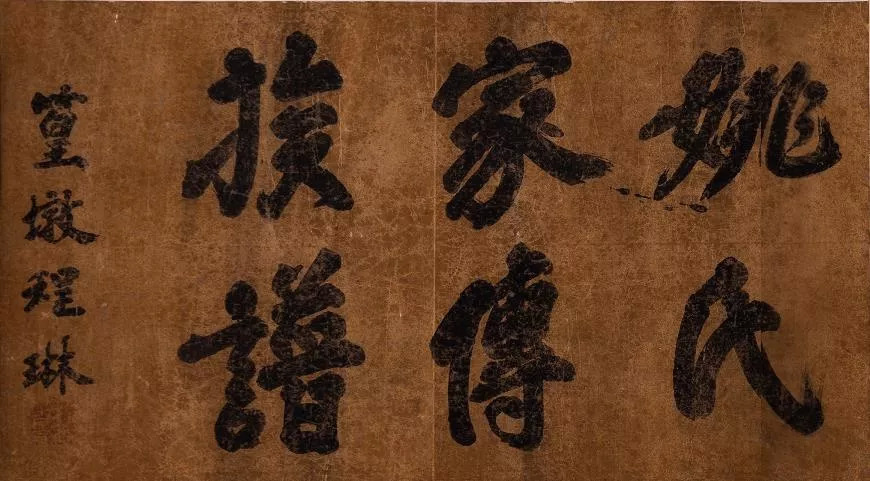 姚氏
家傳
族譜
篁墩程琳